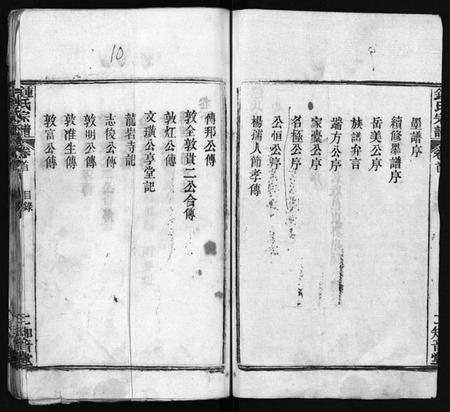 鍾氏宗譜 卷首
墨譜序
續修墨譜序
岳美公序
族譜弁言
端方公序
家臺公序
名極公序
公恒公序
楊孺人節孝傳
知音堂
10
傳邦公傳
敦全敦貴二公合傳
敦灴公傳
文璜公亭堂記
龍岩寺記
志俊公傳
敦明公傳
敦准生傳
敦富公傳
鍾氏宗譜 卷首 目錄
知音堂